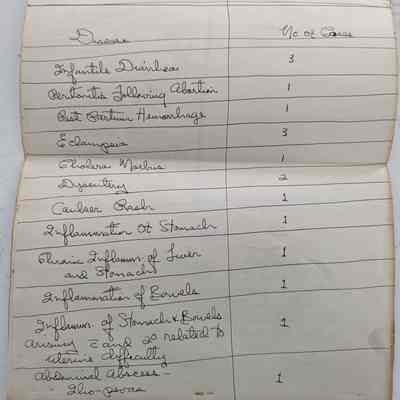 Disease No of Cases
Infantile Diarrhea 3
Peritonitis Following Abortion 1
Post Partum Hemorrhage 1
Eclampsia 3
Cholera Morbus 1
Dysentery 2
Rash 1
Inflammation Of Stomach 1
Chronic Inflamm. of Liver 1
and Stomach
Inflammation of Bowels 1
Inflamm. of Stomach & Bowels 1
arising and related to
uterine difficulty
Abdominal Abscess - 1
Ilio-psoas